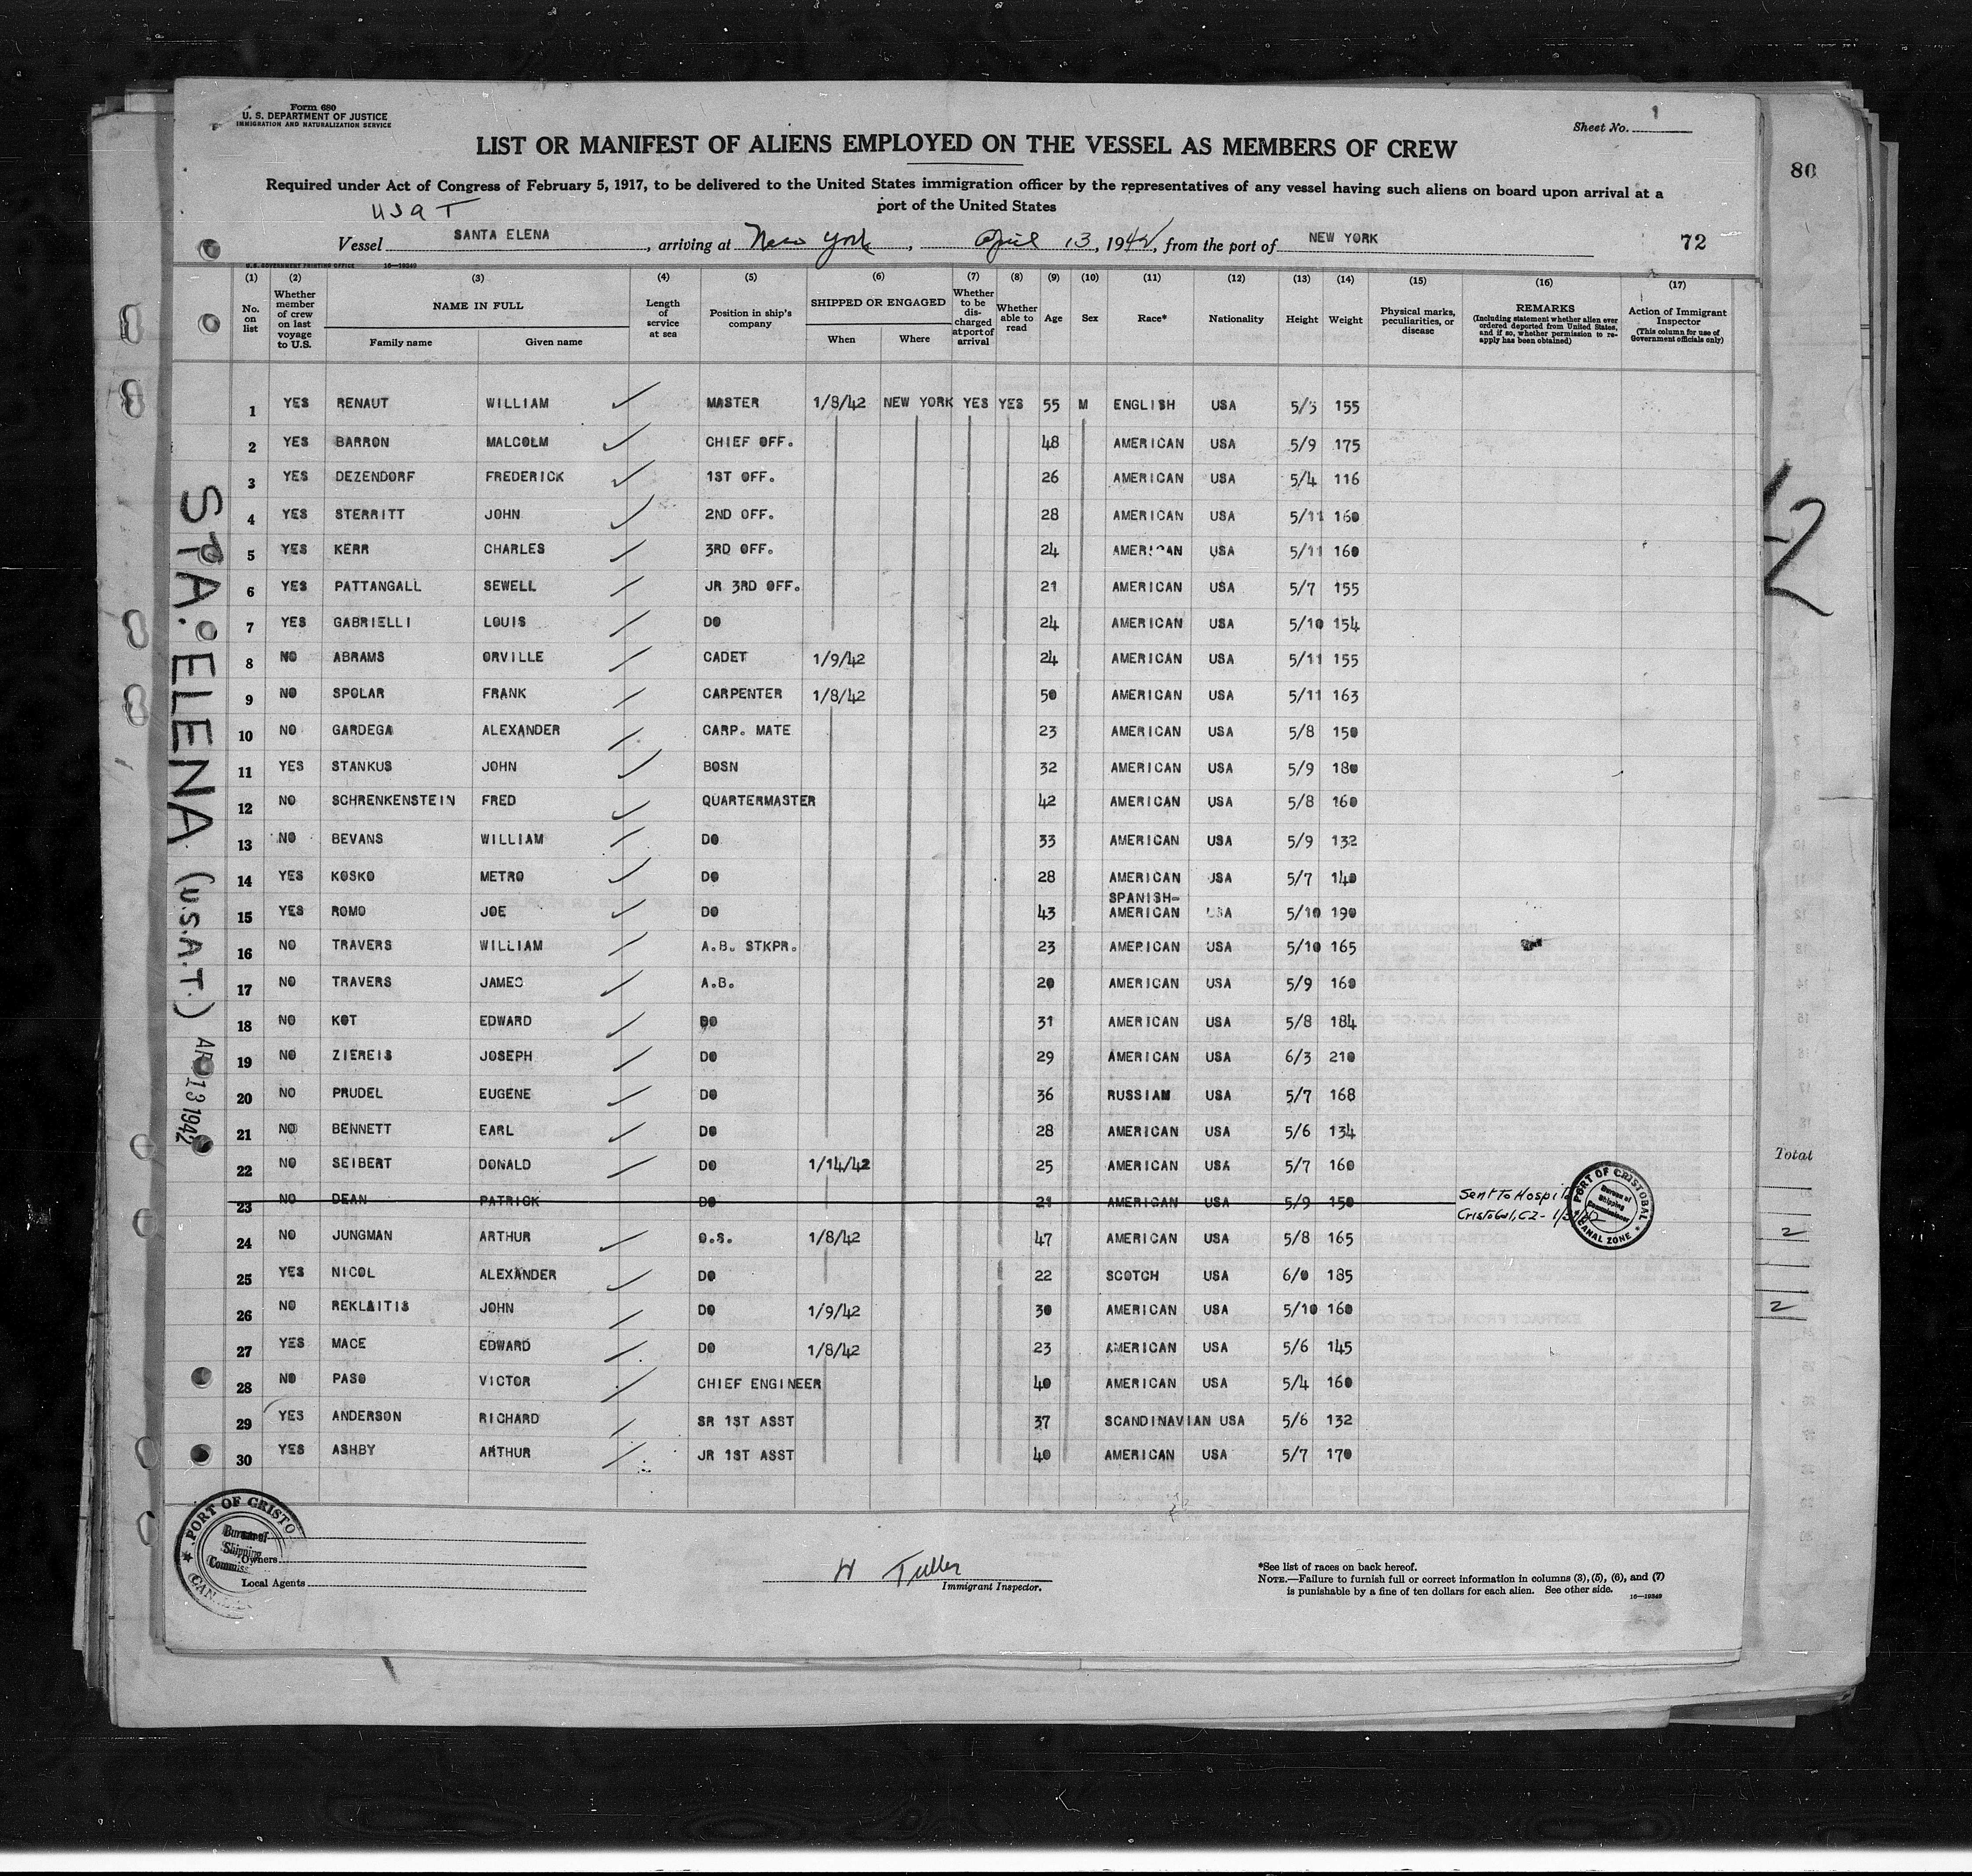 Form 680
U. S. DEPARTMENT OF JUSTICE
IMMIGRATION AND NATURALIZATION SERVICE
Sheet No. 1
LIST OR MANIFEST OF ALIENS EMPLOYED ON THE VESSEL AS MEMBERS OF CREW
80
Required under Act of Congress of February 5, 1917, to be delivered to the United States immigration officer by the representatives of any vessel having such aliens on board upon arrival at a
port of the United States
USAT
Vessel SANTA ELENA, arriving at New York, April 13, 1942, from the port of NEW YORK
72
U.S. GOVERNMENT PRINTING OFFICE 16—19349
(1) (2) (3) (4) (5) (6) (7) (8) (9) (10) (11) (12) (13) (14) (15) (16) (17)
No. on list
Whether member of crew on last voyage to U.S.
NAME IN FULL
Family name
Given name
Length of service at sea
Position in ship's company
SHIPPED OR ENGAGED
When
Where
Whether to be discharged at port of arrival
Whether able to read
Age
Sex
Race*
Nationality
Height
Weight
Physical marks, peculiarities, or disease
REMARKS
(Including statement whether alien ever ordered deported from United States, and if so, whether permission to re-apply has been obtained)
Action of Immigrant Inspector
(This column for use of Government officials only)
1 YES RENAUT WILLIAM MASTER 1/8/42 NEW YORK YES YES 55 M ENGLISH USA 5/5 155
2 YES BARRON MALCOLM CHIEF OFF. 48 AMERICAN USA 5/9 175
3 YES DEZENDORF FREDERICK 1ST OFF. 26 AMERICAN USA 5/4 116
4 YES STERRITT JOHN 2ND OFF. 28 AMERICAN USA 5/11 160
5 YES KERR CHARLES 3RD OFF. 24 AMERICAN USA 5/11 160
6 YES PATTANGALL SEWELL JR 3RD OFF. 21 AMERICAN USA 5/7 155
7 YES GABRIELLI LOUIS DO 24 AMERICAN USA 5/10 154
8 NO ABRAMS ORVILLE CADET 1/9/42 24 AMERICAN USA 5/11 155
9 NO SPOLAR FRANK CARPENTER 1/8/42 50 AMERICAN USA 5/11 163
10 NO GARDEGA ALEXANDER CARP. MATE 23 AMERICAN USA 5/8 150
11 YES STANKUS JOHN BOSN 32 AMERICAN USA 5/9 180
12 NO SCHRENKENSTEIN FRED QUARTERMASTER 42 AMERICAN USA 5/8 160
13 NO BEVANS WILLIAM DO 33 AMERICAN USA 5/9 132
14 YES KOSKO METRO DO 28 AMERICAN USA 5/7 140
15 YES ROMO JOE DO 43 SPANISH-AMERICAN USA 5/10 190
16 NO TRAVERS WILLIAM A.B. STKPR. 23 AMERICAN USA 5/10 165
17 NO TRAVERS JAMES A.B. 20 AMERICAN USA 5/9 160
18 NO KOT EDWARD DO 31 AMERICAN USA 5/8 184
19 NO ZIEREIS JOSEPH DO 29 AMERICAN USA 6/3 210
20 NO PRUDEL EUGENE DO 36 RUSSIAN USA 5/7 168
21 NO BENNETT EARL DO 28 AMERICAN USA 5/6 134
22 NO SEIBERT DONALD DO 1/14/42 25 AMERICAN USA 5/7 160
23 NO DEAN PATRICK DO 21 AMERICAN USA 5/9 150 Sent To Hospital
Cristobal, CZ-
24 NO JUNGMAN ARTHUR O.S. 1/8/42 47 AMERICAN USA 5/8 165
25 YES NICOL ALEXANDER DO 22 SCOTCH USA 6/0 185
26 NO REKLAITIS JOHN DO 1/9/42 30 AMERICAN USA 5/10 160
27 YES MACE EDWARD DO 1/8/42 23 AMERICAN USA 5/6 145
28 NO PASO VICTOR CHIEF ENGINEER 40 AMERICAN USA 5/4 160
29 YES ANDERSON RICHARD SR 1ST ASST 37 SCANDINAVIAN USA 5/6 132
30 YES ASHBY ARTHUR JR 1ST ASST 40 AMERICAN USA 5/7 170
PORT OF CRISTOBAL
Bureau of
Shipping
Commissioner
CANAL ZONE
STA. ELENA (U.S.A.T.) APR 13 1942
Total
2
2
PORT OF CRISTO
Bureau of
Shipping
Commiss
CAN
Owners
Local Agents
W Tuller
Immigrant Inspector.
*See list of races on back hereof.
NOTE.—Failure to furnish full or correct information in columns (3), (5), (6), and (7)
is punishable by a fine of ten dollars for each alien. See other side.
16—19349